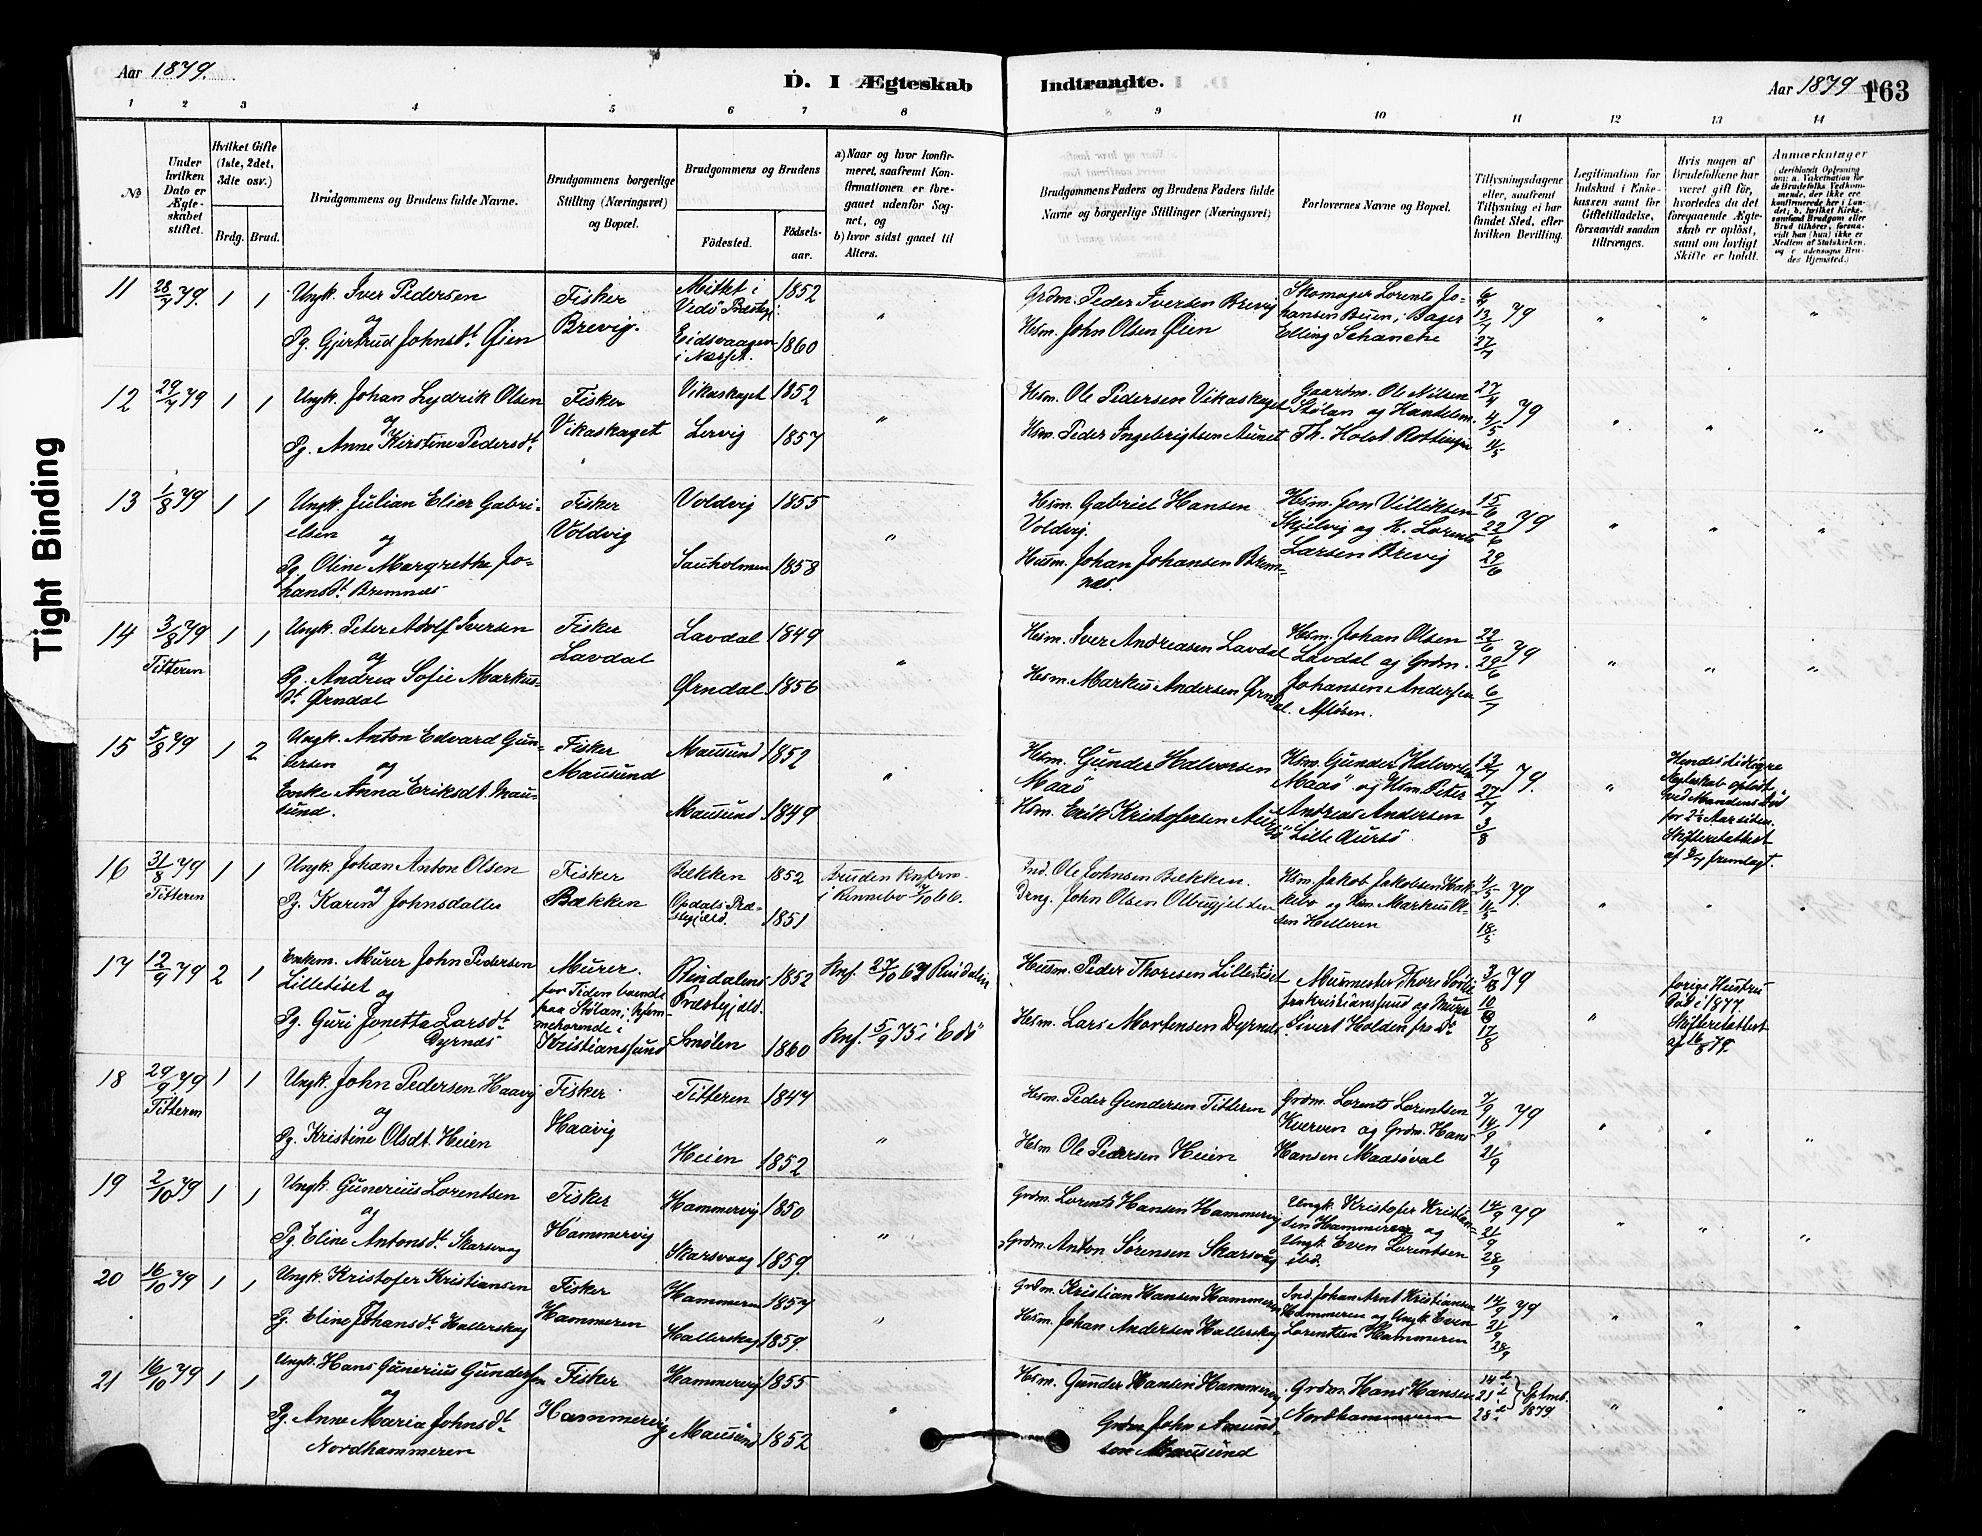 Aar 1879.
D. I Ægteskab
Indtraadte.
Aar 1879
163
Tight Binding
1 2 3 4 5 6 7 8 9 10 11 12 13 14
№
Under hvilken Dato er Ægteskabet stiftet.
Hvilket Gifte (1ste, 2det, 3die osv.)
Brdg. Brud.
Brudgommens og Brudens fulde Navne.
Brudgommens borgerlige Stilling (Næringsvei) og Bopæl.
Brudgommens og Brudens
Fødested.
Fødselsaar.
a) Naar og hvor konfirmeret, saafremt Konfirmationen er foregaaet udenfor Sognet, og
b) hvor sidst gaaet til Alters.
Brudgommens Faders og Brudens Faders fulde Navne og borgerlige Stillinger (Næringsvei)
Forlovernes Navne og Bopæl.
Tillysningsdagene eller, saafremt Tillysning ei har fundet Sted, efter hvilken Bevilling.
Legitimation for Indskud i Enkekassen samt for Giftetilladelse, forsaavidt saadan tiltrænges.
Hvis nogen af Brudefolkene har været gift før, hvorledes da det foregaaende Ægteskab er opløst, samt om lovligt Skifte er holdt.
Anmærkninger
11 28/7 79. 1 1
Ungk. Iver Pedersen
og
Pg. Gjertrud Johnsdt. Øien
Fisker
Brevig.
1852
Eidsvaagen
i Næsset.
1860
Grdm. Peder Iversen Brevig
Hsm. John Olsen Øien
Skomager Lorents Jo-
hansen Buen, Bager
Elling Schanche
6/7 13/7 27/7 79
12 29/7 79 1 1
Ungk. Johan Lydrik Olsen
og
Pg. Anne Kirstine Pedersdt.
Fisker
Vikaskaget
Vikaskaget 1852
Lervig 1857
Hsm. Ole Pedersen Vikaskaget
Hsm. Peder Ingebrigtsen Aunet
Gaardm. Ole Nilsen
Stølan og Handelsm.
Th. Holst Rottingen
27/4 4/5 11/5 79
13 1/8 79 1 1
Ungk. Julian Elier Gabri-
elsen og
Pg. Oline Margrethe Jo-
hansdt. Bremnes
Fisker
Voldvig
Voldvig 1855
Sauholmen 1858
Hsm. Gabriel Hansen
Voldvig.
Husm. Johan Johansen Brem-
nes.
Hsm. Jon Villiksen
Skjelvig og K. Lorents
Larsen Brevig
15/6 22/6 29/6 79
14 3/8 79 1 1
Titteren
Ungk. Peter Adolf Iversen
og
Pg. Andrea Sofie Markus-
dt. Ørndal
Fisker
Lavdal
Lavdal 1849
Ørndal 1856
Hsm. Iver Andreasen Lavdal
Hsm. Markus Andersen Ørndal.
Hsm. Johan Olsen
Lavdal og Grdm.
Johansen Andersen
22/6 29/6 6/7 79
15 5/8 79 1 2
Ungk. Anton Edvard Gun-
dersen og
Enke Anna Eriksdt. Mau-
sund.
Fisker
Mausund
Mausund 1852
Mausund 1849
Hsm. Gunder Halvorsen
Maaø
Hsm. Erik Kristofersen
Hsm. Gunder Halvorsen
Maaø og Hsm. Peter
Andreas Andersen
Lille Aursø
13/7 27/7 3/8 79.
Hendes tidligere
Ægteskab opløst
ved Mandens Død
for 2½ Aar siden.
Skifteretsattest
fremlagt.
16 31/8 79 1 1
Titteren
Ungk. Johan Anton Olsen
og
Pg. Karen Johnsdatter
Fisker
Bækken
Bækken 1852
Opdals Præ-
stegjeld. 1851
Bruden Knfirm.
i Rennebo
Ind. Ole Johnsen Bækken.
John Olsen
Hsm. Jakob Jakobsen
og Hsm. Markus Ol-
sen Helleren
4/5 11/5 18/5 79.
17 12/9 79 2 1
Enkm. Murer John Pedersen
Lilletiset
og
Pg. Guri Jonetta Larsdt.
Dyrnes
Murer.
for Tiden boende
paa Stølan, hjem-
mehørende i
Kristianssund
Rindalens
Præstegjeld. 1852
Smølen 1860
Knf. 27/10 67 Rindalen
Knf. 5/9 75 i Edø
Husm. Peder Thoresen Lilletiset
Hsm. Lars Mortensen Dyrnes
Murmester Thore
fra Kristianssund og Murer
Sivert Holden fra Do.
3/8 10/8 17/8 79
forige Hustru
Død i 1877
Skifteretsattest
af 16/8 79.
18 29/9 79 1 1
Titteren
Ungk. John Pedersen Haavig
og
Pg. Kristine Olsdt. Heien
Fisker
Haavig
Titteren 1847
Heien 1852
Hsm. Peder Gundersen Titteren
Hsm. Ole Pedersen Heien
Grdm. Lorents Lorentsen
Kverven og Grdm. Hans
Hansen Maasøval
7/9 14/9 21/9 79
19 2/10 79 1 1
Ungk. Gunerius Lorentsen
og
Pg. Eline Antonsdt. Skarsvaag
Fisker
Hammervig
Hammervig 1850
Skarsvaag 1859.
Grdm. Lorents Hansen Hammervig
Grdm. Anton Sørensen Skarsvåg
Ungk. Kristofer Kristian-
sen Hammeren og
Ungk. Even Lorentsen
ibd.
14/9 21/9 28/9 79
20 16/10 79 1 1
Ungk. Kristofer Kristiansen
Pg. Eline Johansdt. Hallerskag
Fisker
Hammeren
Hammeren 1857
Hallerskag 1859.
Grdm. Kristian Hansen Hammeren
Hsm. Johan Andersen Hallerskag
Ind. Johan Arnt Kristiansen
Hammeren og Ungk. Even
Lorentsen Hammeren
14/9 21/9 28/9 79
21 16/10 79 1 1
Ungk. Hans Gunerius Gundersen
og
Pg. Anne Maria Johnsdt.
Nordhammeren
Fisker
Hammervig
Hammervig 1855
Mausund 1852
Hsm. Gunder Hansen Hammervig
Grdm. John Amund-
sen Mausund
Grdm. Hans Hansen
Nordhammeren
14de 21de 28de Sptmb. 1879